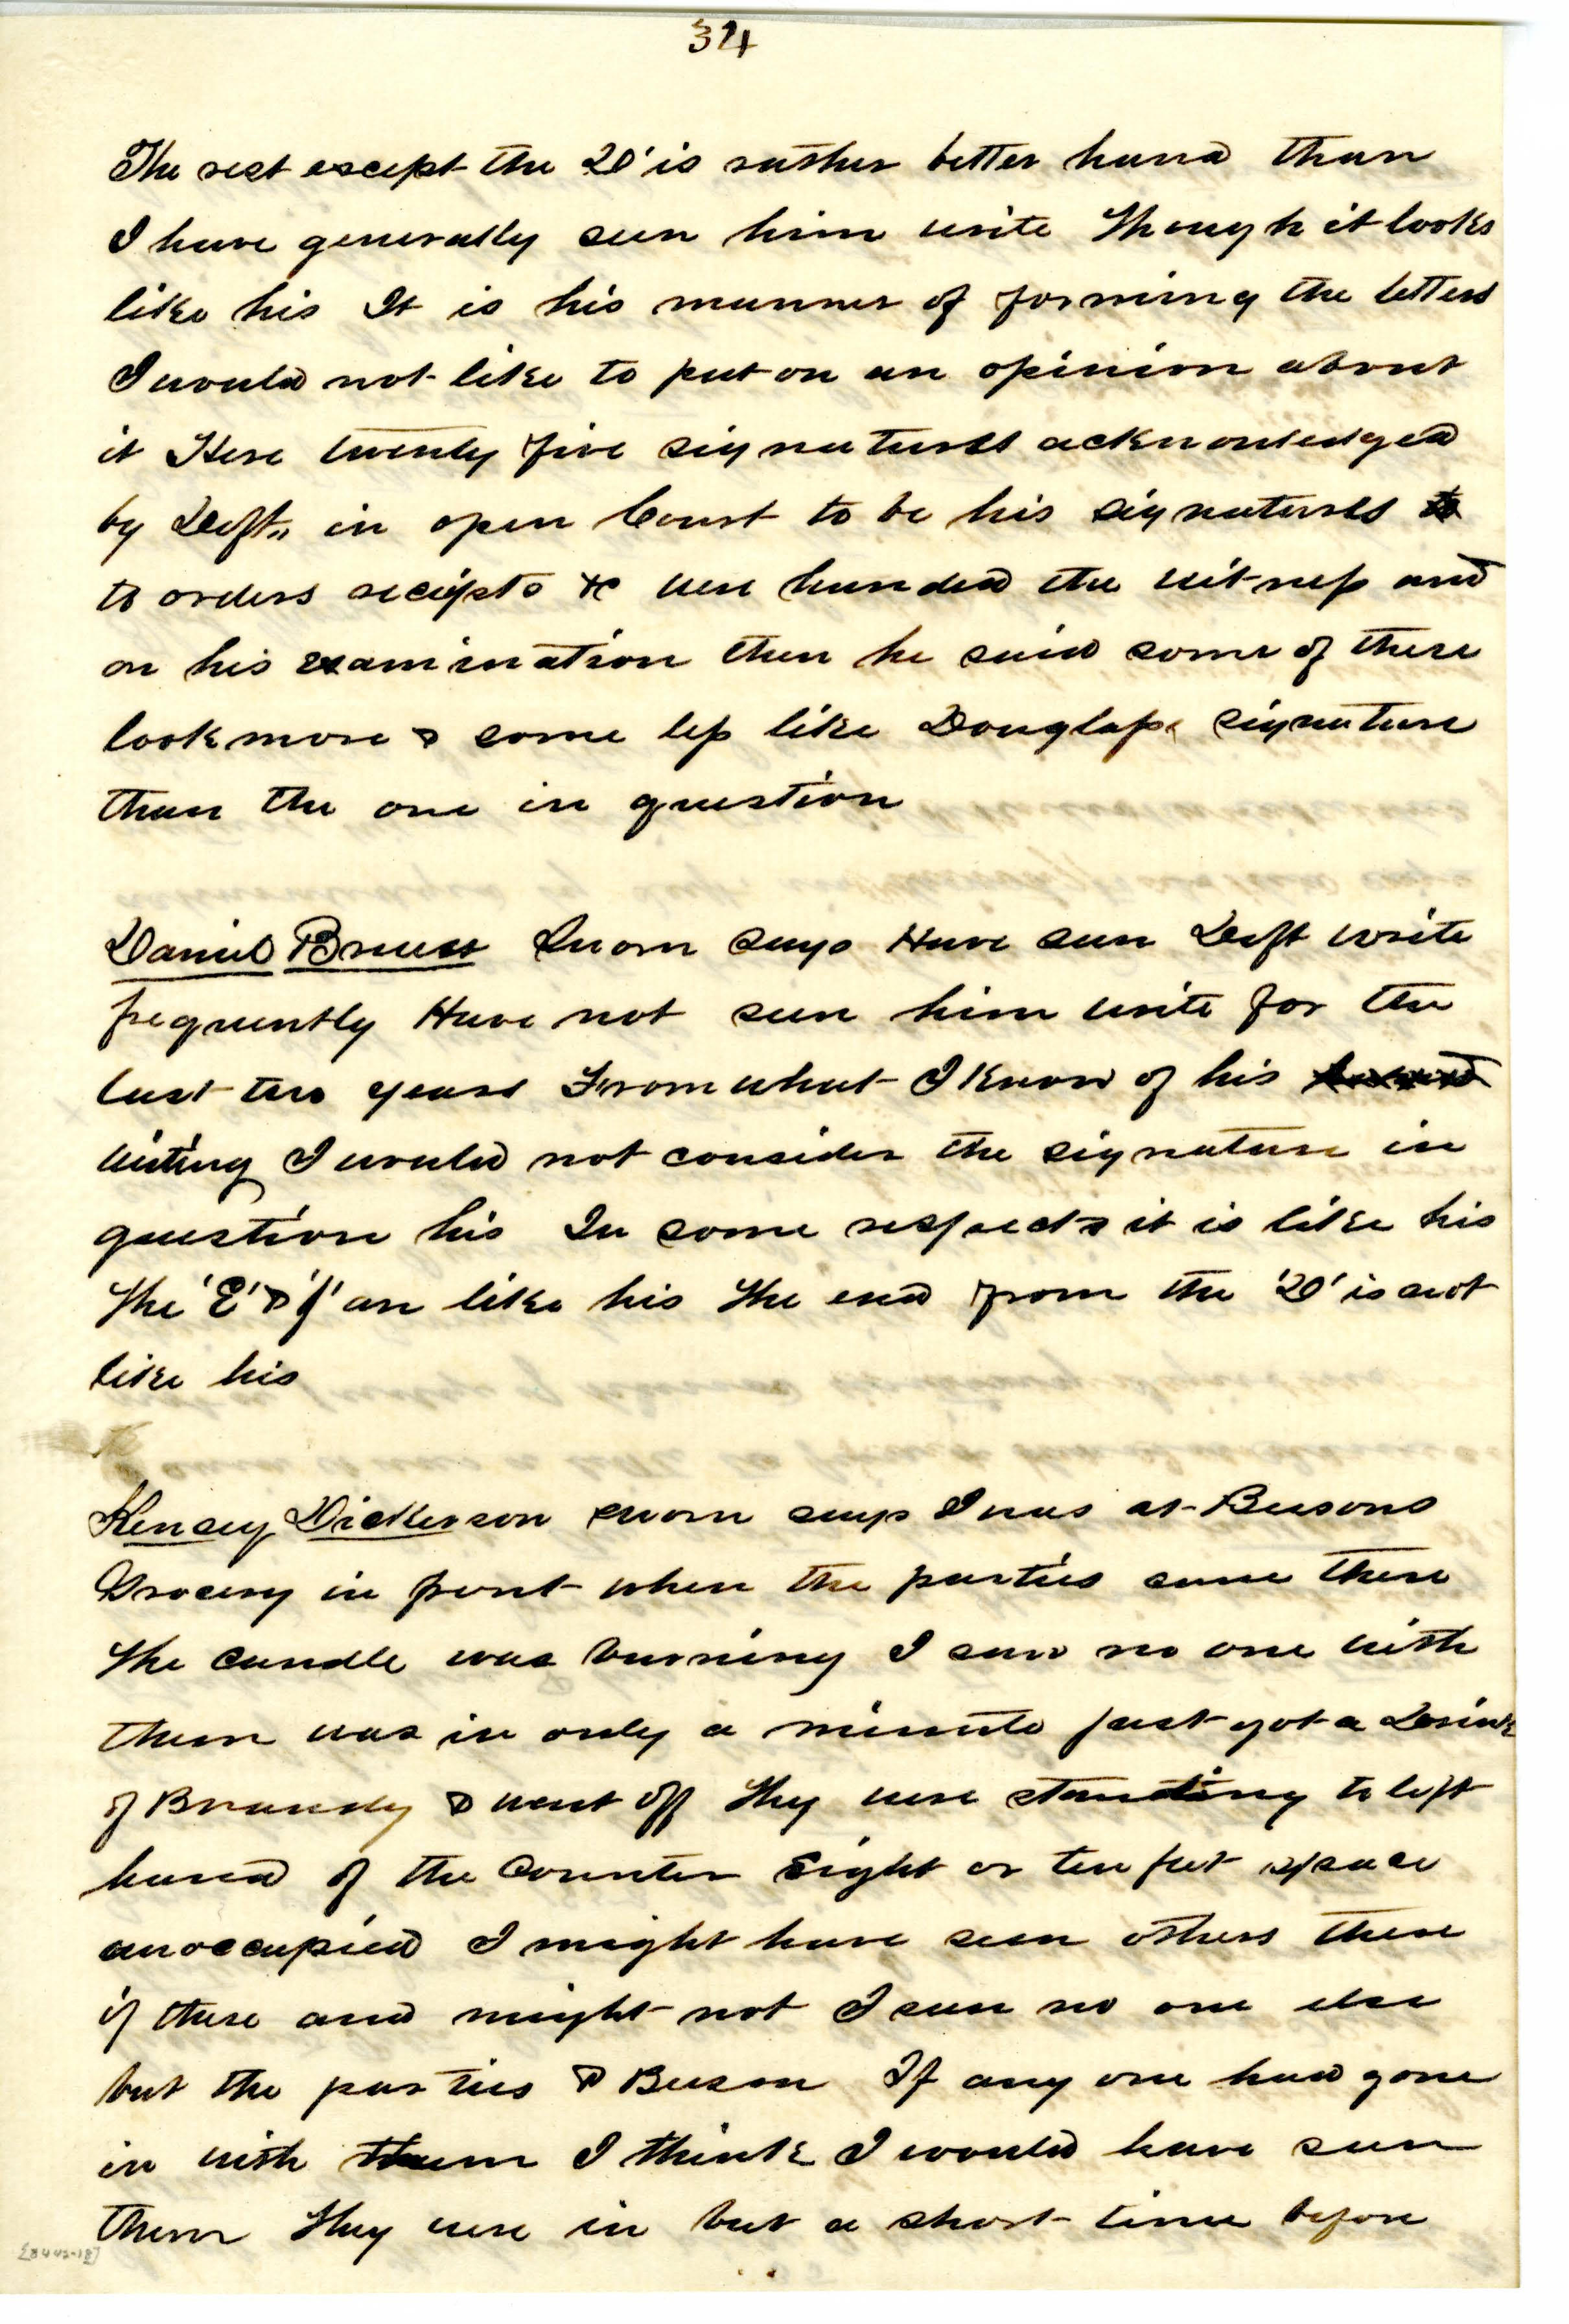 34
The rest except the 'D' is rather better hand than
I have generally seen him write Though it looks
like his It is his manner of forming the letters
I would not like to put on an opinion about
it Here twenty five signatures acknowledged
by Deft. in open Court to be his signatures
to orders reciepts &c were handed the witness and
on his examination then he said some of these
look more & some less like Douglass signature
than the one in question
Daniel sworn says Have seen Deft write
frequently Have not seen him write for the
last two years From what I know of his
writing I would not consider the signature in
question his In some respects it is like his
The 'E' & 'J' are like his The end from the 'D' is not
like his
Kensey Dickerson sworn says I was at Beesons
Grocery in front when the parties came there
The candle was burning I saw no one with
them was in only a minute just got a Drink
of Brandy & went off They were standing to left
hand of the Counter Eight or ten feet space
unoccupied I might have seen others there
if there and might not I seen no one else
but the parties & Beeson If any one had gone
in with them I think I would have seen
them They were in but a short time before